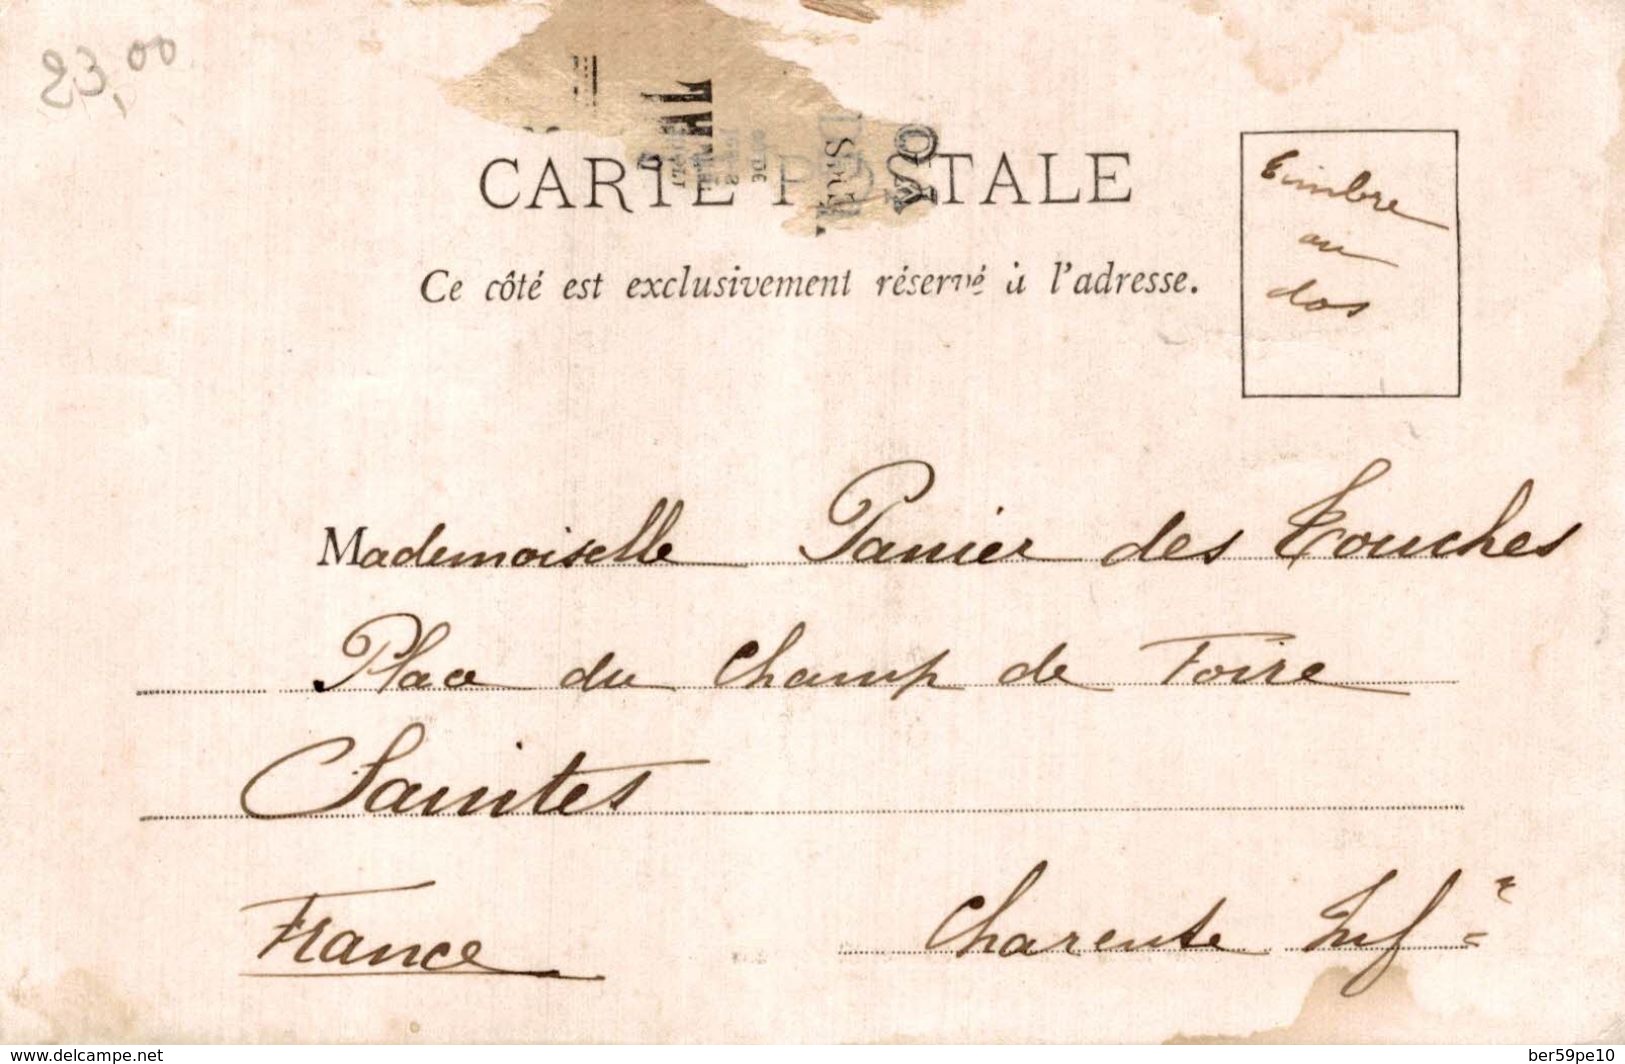 23,00
CARTE POSTALE
Ce côté est exclusivement réservé à l'adresse.
timbre
au
dos
Mademoiselle Panier des Touches
Place du Champ de Foire
Saintes
France Charente Infre
www.delcampe.net ber59pe10